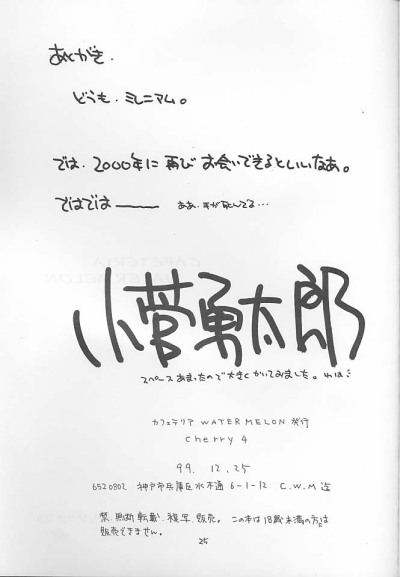 あとがき.
どうも. ミレニアム。
では、2000年に再びお会いできるといいなあ。
ではでは―――― ああ、手が死んでる…
小菅勇太郎
スペースあまったので大きくかいてみました。わは
カフェテリア WATERMELON 発行
cherry 4
99. 12. 25
6520802 神戸市兵庫区水木通 6-1-12 C.W.M 迄
禁. 無断転載. 複写. 販売。 この本は18歳未満の方は
販売できません。
25